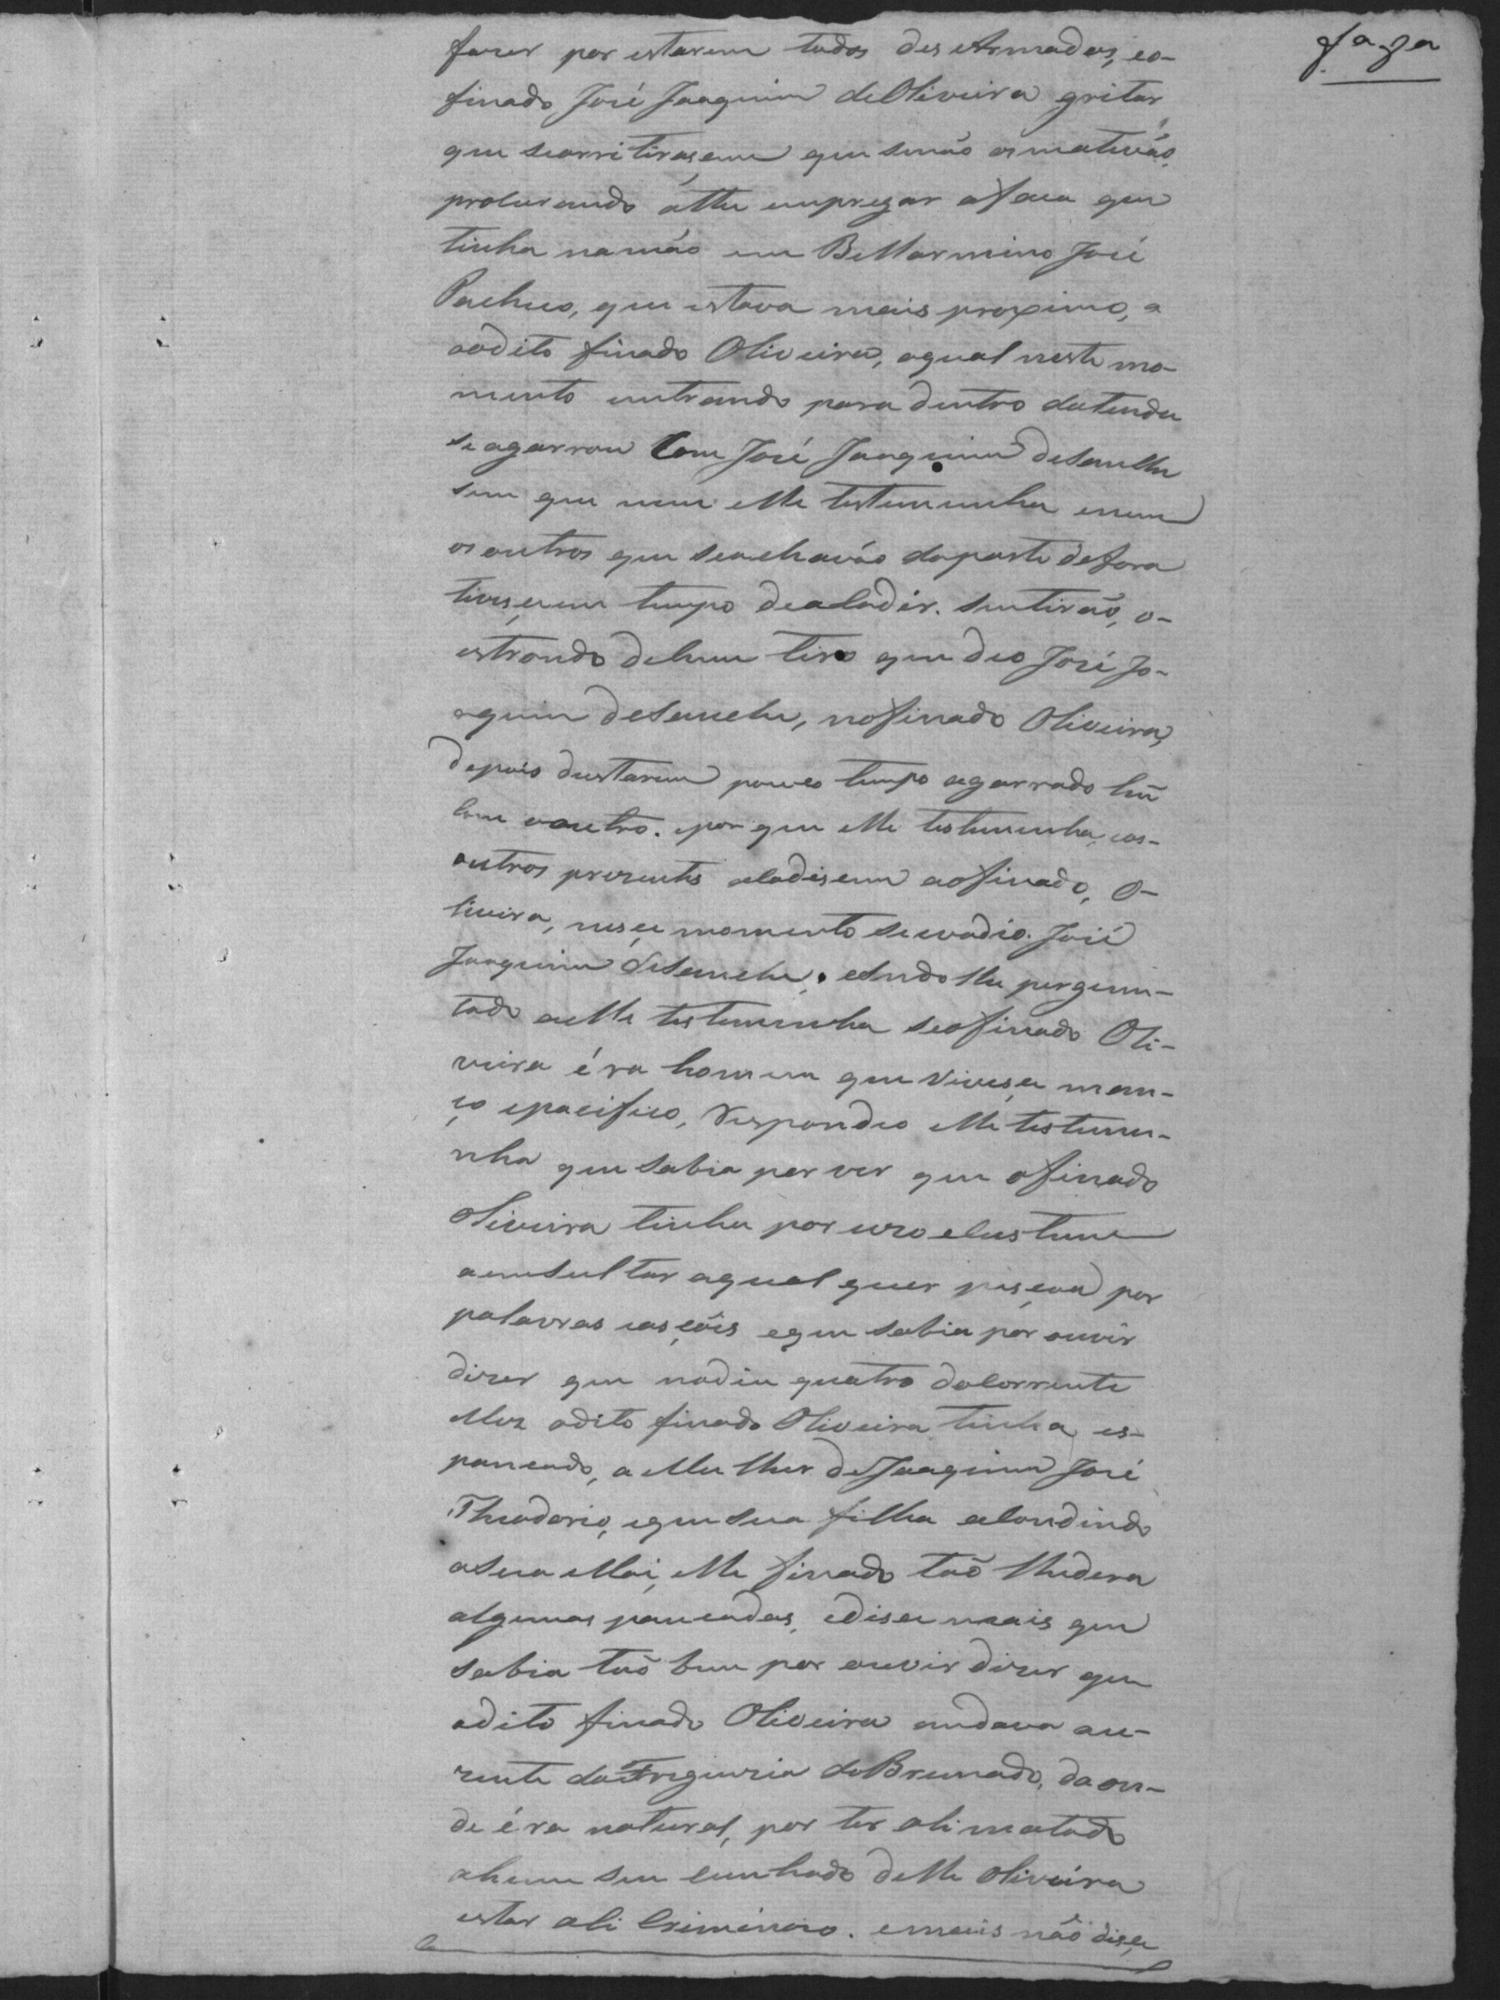 faser por estarem todos des Armados, eo-
finado José Joaquim deOliveira gritar
que searritirasem que senão os mativão,
procurando athe empregar afaca que
tinha namão em Bellarmino José
Pacheco, que estava mais proximo, a
aodito finado Oliveira, oqual neste mo-
mento entrando para dentro datenda
se agarrou Com José Joaquim deSancha
sem que nem elle testemunha enem
os outros que seachavão daparte defora
tivesem tempo deacodir. sentirão, o-
estrondo dehum tiro que deo José Jo-
aquim deSancha, nofinado Oliveira,
depois deestarem pouco tempo agarrado hũ
Com ooutro. epor que elle testemunha, eos-
outros prezentes acodisem aofinado, O-
liveira, nese momento seevadio. José
Joaquim deSancha. esendo lhe pergun-
tado aelle testemunha seofinado Oli-
veira éra homem que vivese man-
ço epacifico, Respondeo elle testemu-
nha que sabia por ver que ofinado
Oliveira tinha por uzo eCustume
aensultar aqual quer pesoa por
palavras easçõis eque sabia por ouvir
dizer que nodia quatro doCorrente
Mez odito finado Oliveira tinha es-
pancado, a Mulher deJoaquim José
Theodorio, equesua filha acondindo
asua Mai, elle finado taõ lhedera
algumas pancadas, edise mais que
sabia taõ bem por ouvir dizer que
odito finado Oliveira andava au-
zente daFreguezia doBrumado, daon-
de éra natural, por ter ali matado
ahum seu Cunhado delle Oliveira
estar ali Criminozo. emais não dise,